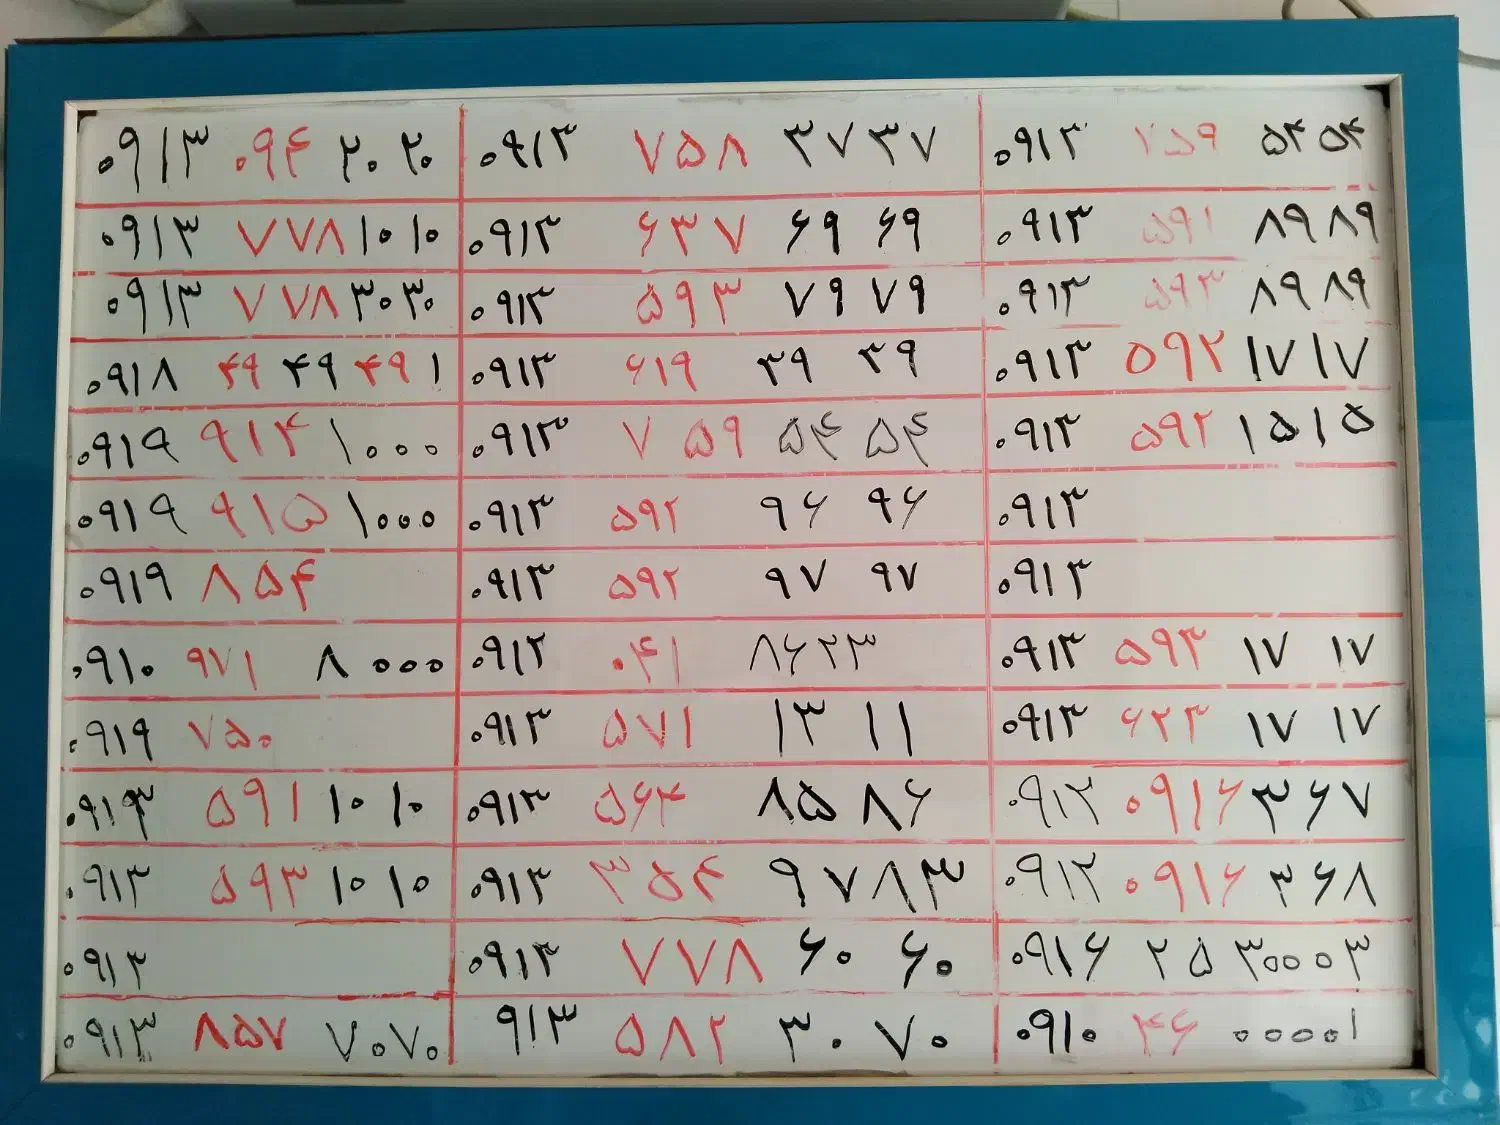 ۰۹۱۳ ۰۹۴ ۲۰ ۲۰
۰۹۱۳ ۷۷۸ ۱۰ ۱۰
۰۹۱۳ ۷۷۸ ۳۰ ۳۰
۰۹۱۸ ۴۹ ۴۹ ۴۹ ۱
۰۹۱۹ ۹۱۴ ۱۰۰۰
۰۹۱۹ ۹۱۵ ۱۰۰۰
۰۹۱۹ ۸۵۴
۰۹۱۰ ۹۷۱ ۸۰۰۰
۰۹۱۹ ۷۵۰
۰۹۱۳ ۵۹۱ ۱۰ ۱۰
۰۹۱۳ ۵۹۳ ۱۰ ۱۰
۰۹۱۳
۰۹۱۳ ۸۵۷ ۷۰۷۰
۰۹۱۳ ۷۵۸ ۳۷ ۳۷
۰۹۱۳ ۶۳۷ ۶۹ ۶۹
۰۹۱۳ ۵۹۳ ۷۹ ۷۹
۰۹۱۳ ۶۱۹ ۳۹ ۳۹
۰۹۱۳ ۷۵۹ ۵۴ ۵۴
۰۹۱۳ ۵۹۲ ۹۶ ۹۶
۰۹۱۳ ۵۹۲ ۹۷ ۹۷
۰۹۱۲ ۰۴۱ ۸۶۲۳
۰۹۱۳ ۵۷۱ ۱۳ ۱۱
۰۹۱۳ ۵۶۴ ۸۵ ۸۶
۰۹۱۳ ۳۵۴ ۹۷۸۳
۰۹۱۳ ۷۷۸ ۶۰ ۶۰
۹۱۳ ۵۸۲ ۳۰ ۷۰
۰۹۱۳ ۷۵۹ ۵۴ ۵۴
۰۹۱۳ ۵۹۱ ۸۹ ۸۹
۰۹۱۳ ۵۹۳ ۸۹ ۸۹
۰۹۱۳ ۵۹۲ ۱۷ ۱۷
۰۹۱۳ ۵۹۲ ۱۵ ۱۵
۰۹۱۳
۰۹۱۳
۰۹۱۳ ۵۹۳ ۱۷ ۱۷
۰۹۱۳ ۶۲۳ ۱۷ ۱۷
۰۹۱۲ ۰۹۱۶ ۳۶۷
۰۹۱۲ ۰۹۱۶ ۳۶۸
۰۹۱۶ ۲۵ ۳۰۰۰۳
۰۹۱۰ ۴۶ ۰۰۰۰۱